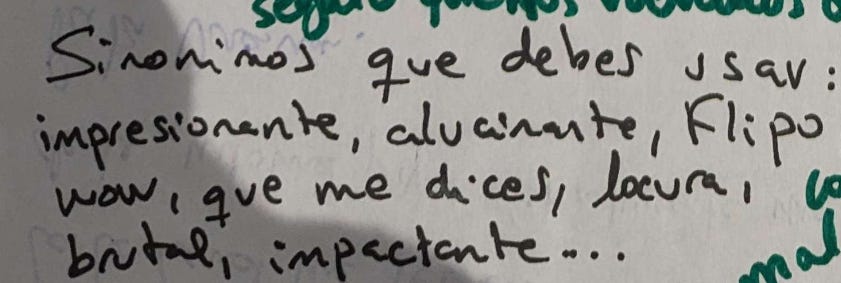 Sinonimos que debes usar:
impresionante, alucinante, Flipo
wow, que me dices, locura,
brutal, impactante....
mal